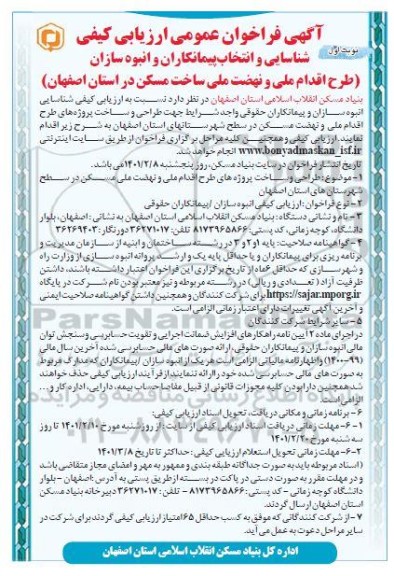 نوبت اول
آگهی فراخوان عمومی ارزیابی کیفی
شناسایی و انتخاب پیمانکاران و انبوه سازان
(طرح اقدام ملی و نهضت ملی ساخت مسکن در استان اصفهان)
بنیاد مسکن انقلاب اسلامی استان اصفهان در نظر دارد نسبت به ارزیابی کیفی شناسایی
انبوه سازان و پیمانکاران حقوقی واجد شرایط جهت طراحی و ساخت پروژه‌های طرح
اقدام ملی و نهضت مسکن در سطح شهرستانهای استان اصفهان به شرح زیر اقدام
نمایند. ارزیابی کیفی و همچنین کلیه مراحل برگزاری فراخوان از طریق سایت اینترنتی
www.bonyadmaskan_isf.ir انجام خواهد شد.
تاریخ انتشار فراخوان در سایت بنیاد مسکن، روز پنجشنبه ۱۴۰۱/۲/۸ می باشد.
۱- موضوع: طراحی و ساخت پروژه های طرح اقدام ملی و نهضت ملی مسکن در سطح
شهرستان های استان اصفهان
۲- نوع فراخوان: ارزیابی کیفی انبوه سازان / پیمانکاران حقوقی
۳- نام و نشانی دستگاه: بنیاد مسکن انقلاب اسلامی استان اصفهان به نشانی: اصفهان، بلوار
دانشگاه، کوچه زمانی، کد پستی: ۸۱۷۳۹۶۵۸۶۶ تلفن: ۳۶۲۷۱۰۱۷ دورنگار: ۳۶۲۶۹۴۰۳
۴- گواهینامه صلاحیت: پایه ۱ و ۲ و ۳ در رشته ساختمان و ابنیه از سازمان مدیریت و
برنامه ریزی برای پیمانکاران و یا حداقل پایه یک و ارشد پروانه انبوه سازی از وزارت راه
و شهرسازی که حداقل ۶ ماه از تاریخ برگزاری این فراخوان اعتبار داشته باشند، داشتن
ظرفیت آزاد (تعدادی و ریالی) در رشته مربوطه و نیز معتبر بودن نام شرکت در پایگاه
https://sajar.mporg.ir برای شرکت کنندگان و همچنین داشتن گواهینامه صلاحیت ایمنی
و آخرین آگهی تغییرات دارای اعتبار زمانی الزامی است.
۵- سایر شرایط شرکت کنندگان
در اجرای ماده ۲ آیین نامه راهکارهای افزایش ضمانت اجرایی و تقویت حسابرسی و سنجش توان
مالی انبوه سازان و پیمانکاران حقوقی، ارائه صورت های مالی حسابرسی شده آخرین سال مالی
(۹۹-۱۴۰۰) و اظهارنامه مالیاتی الزامی است. هر یک از انبوه سازان / پیمانکاران که مدارک مربوط
به صورت های مالی حسابرسی شده خود را ارائه ننمایند از فرآیند ارزیابی کیفی حذف خواهند
شد همچنین دارا بودن کلیه مجوزات قانونی از قبیل مفاصا حساب بیمه، دارایی، اداره کار و...
الزامی است.
۶- برنامه زمانی و مکانی دریافت، تحویل اسناد ارزیابی کیفی:
۶-۱- مهلت زمانی دریافت اسناد ارزیابی کیفی از سایت: از روز شنبه مورخ ۱۴۰۱/۲/۱۰ تا روز
سه شنبه مورخ ۱۴۰۱/۲/۲۰
۶-۲- مهلت زمانی تحویل استعلام ارزیابی کیفی: حداکثر تا تاریخ ۱۴۰۱/۳/۸
(اسناد مربوطه باید به صورت جداگانه طبقه بندی و ممهور به مهر و امضای مجاز متقاضی باشد
و در مهلت مقرر به صورت دستی در پاکت در بسته از طریق پستی به آدرس: اصفهان - بلوار
دانشگاه کوچه زمانی - کد پستی: ۸۱۷۳۹۶۵۸۶۶ - تلفن: ۳۶۲۷۱۰۱۷ دبیرخانه بنیاد مسکن
استان اصفهان ارسال گردند.
۷- از شرکت کنندگانی که موفق به کسب حداقل ۶۵ امتیاز ارزیابی کیفی گردند برای شرکت در
سایر مراحل دعوت به عمل می آید.
اداره کل بنیاد مسکن انقلاب اسلامی استان اصفهان